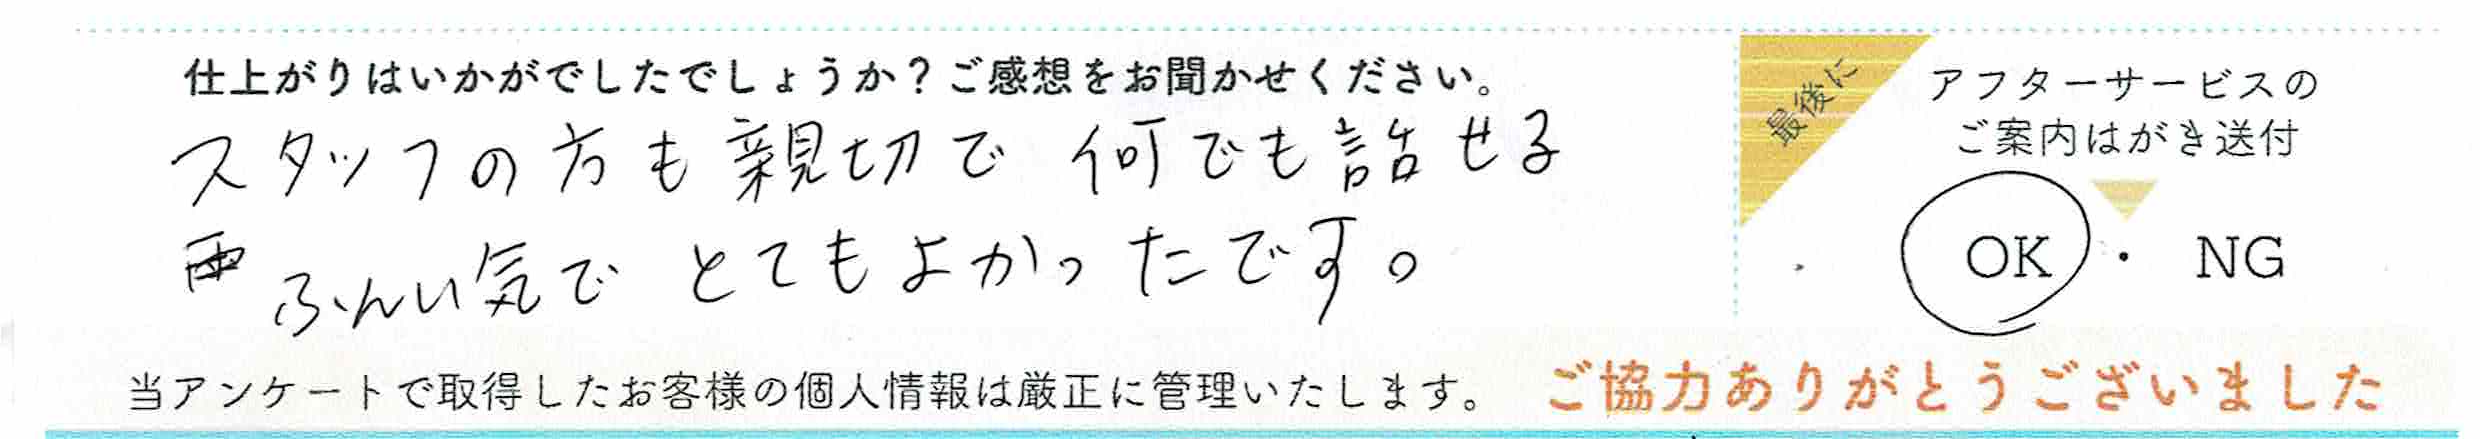 仕上がりはいかがでしたでしょうか？ご感想をお聞かせください。
スタッフの方も親切で 何でも話せる
ふんい気で とてもよかったです。
最後に
アフターサービスの
ご案内はがき送付
OK ・ NG
当アンケートで取得したお客様の個人情報は厳正に管理いたします。
ご協力ありがとうございました